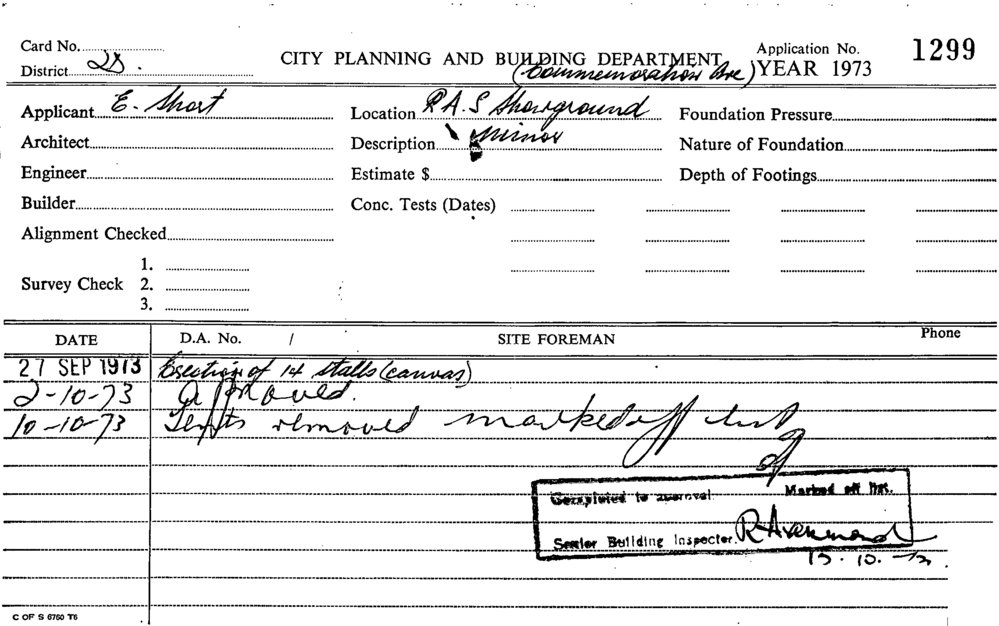 Card No. Application No. 1299
CITY PLANNING AND BUILDING DEPARTMENT YEAR 1973
District 2D. (Commemoration Ave)
Applicant E. Short Location R A.S Showground Foundation Pressure
Architect Description Minor Nature of Foundation
Engineer Estimate $ Depth of Footings
Builder Conc. Tests (Dates)
Alignment Checked
1.
Survey Check 2.
3.
DATE D.A. No. / SITE FOREMAN Phone
27 SEP 1973 Erection of 14 stalls (canvas)
2-10-73 Approved.
10-10-73 Tents removed marked off list
Completed to approval. Marked off list.
Senior Building Inspector.
C OF S 6760 T6